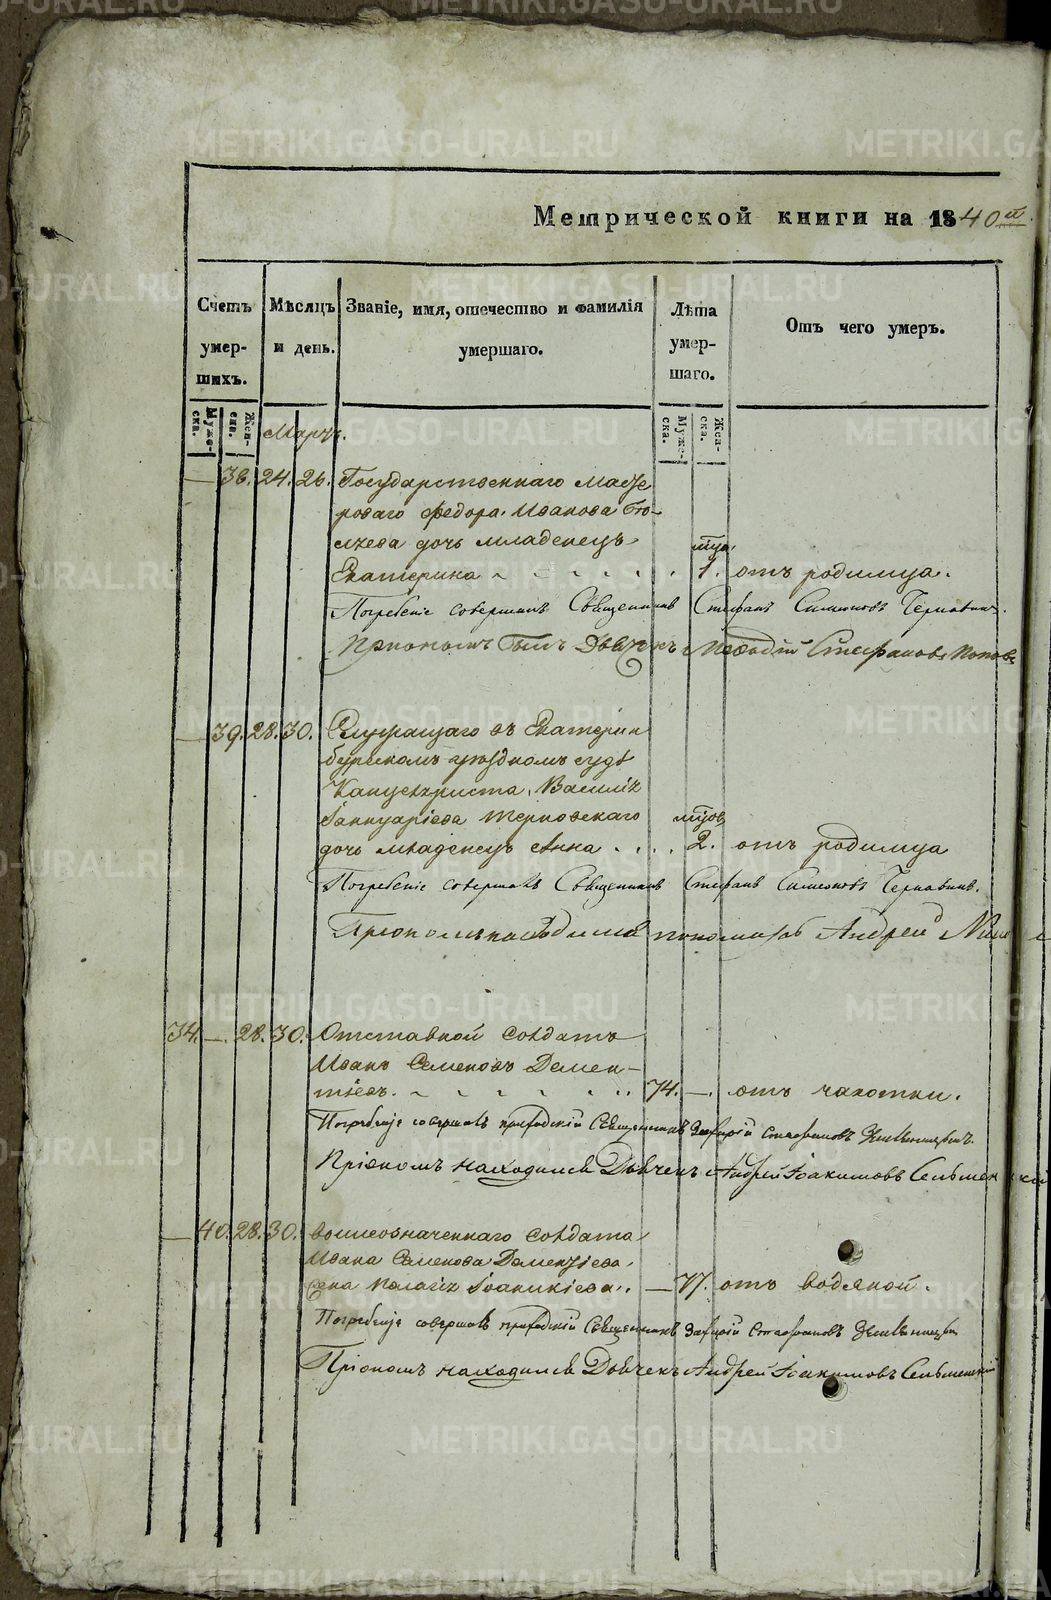 Метрической книги на 1840й
Счетъ умер- шихъ.
Мѣсяцъ и день.
Званіе, имя, отечество и фамилія умершаго.
Лѣта умер- шаго.
Отъ чего умеръ.
Муже- ска.
Жен- ска.
Муже- ска.
Жен- ска.
Мартъ.
— 38. 24. 26. Государственнаго
роваго Федора Иванова
дочь младенецъ
Екатерина 1. отъ родимца.
Погребеніе совершалъ Священникъ Стефанъ Симеоновъ Чернавинъ.
Причтомъ былъ Дьячекъ Меѳодій Стефановъ Поповъ
— 39. 28. 30. Служащаго въ Екатерин
бургскомъ уѣздномъ судѣ
Канцеляриста Василія
Іаннуаріева Терновскаго мцов
дочь младенецъ Анна . . . . 2. отъ родимца
Погребеніе совершалъ Священникъ Стефанъ Симеоновъ Чернавинъ.
находился пономарь Андрей
34. — 28. 30. Отставной солдатъ
Иванъ Семеновъ Демен-
тіевъ. 74. — отъ чахотки.
Погребеніе совершалъ приходскій Священникъ Захарій
Причтомъ находился Дьячекъ Андрей Іоакимовъ Сельменскій
— 40. 28. 30. вышеозначеннаго солдата
Ивана Семенова Дементіева
жена Палагія Іоаникіева. — 77. отъ водяной.
Погребеніе совершалъ приходскій Священникъ Захарій
Причтомъ находился Дьячекъ Андрей Іоакимовъ Сельменскій
METRIKI.GASO-URAL.RU